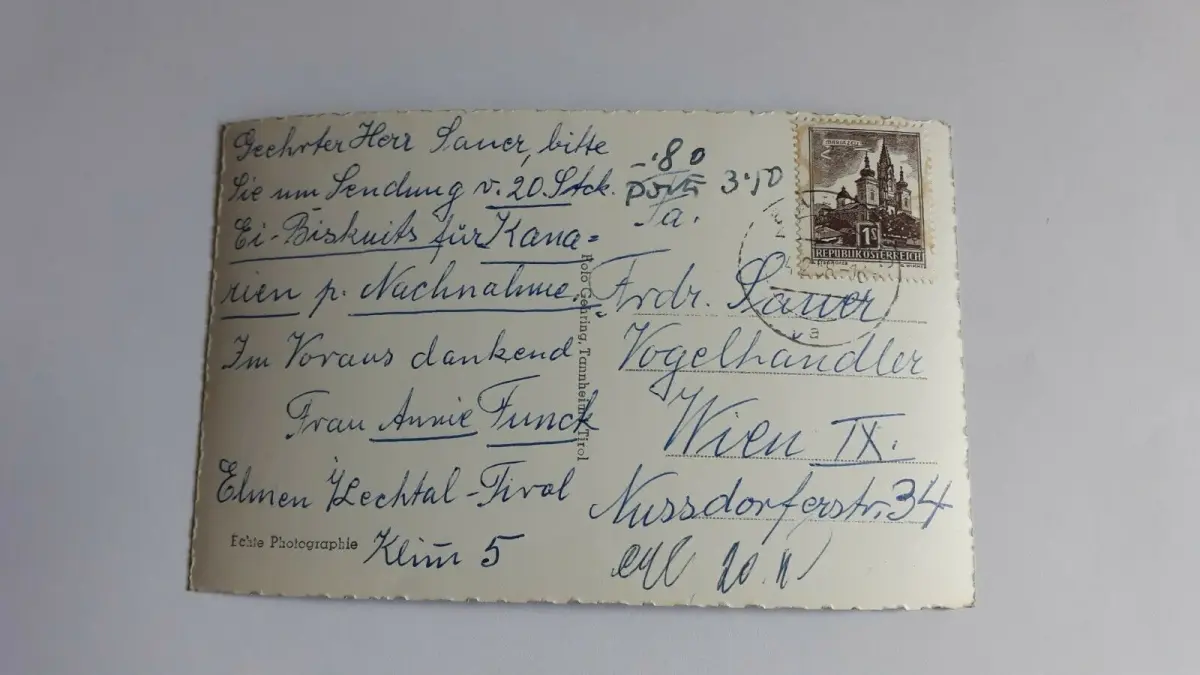 Geehrter Herr Sauer, bitte
Sie um Sendung v. 20 Stck.
Ei-Biskuits für Kana=
rien p. Nachnahme.
Im Voraus dankend
Frau Annie Funck
Elmen /Lechtal-Tirol
Klim 5
Echte Photographie
Foto Gehring, Tannheim, Tirol
-.80
porto 3.50
Fa.
Frdr. Sauer
Vogelhändler
Wien IX.
Nussdorferstr. 34
20.II
MARIAZELL
1S
REPUBLIK ÖSTERREICH